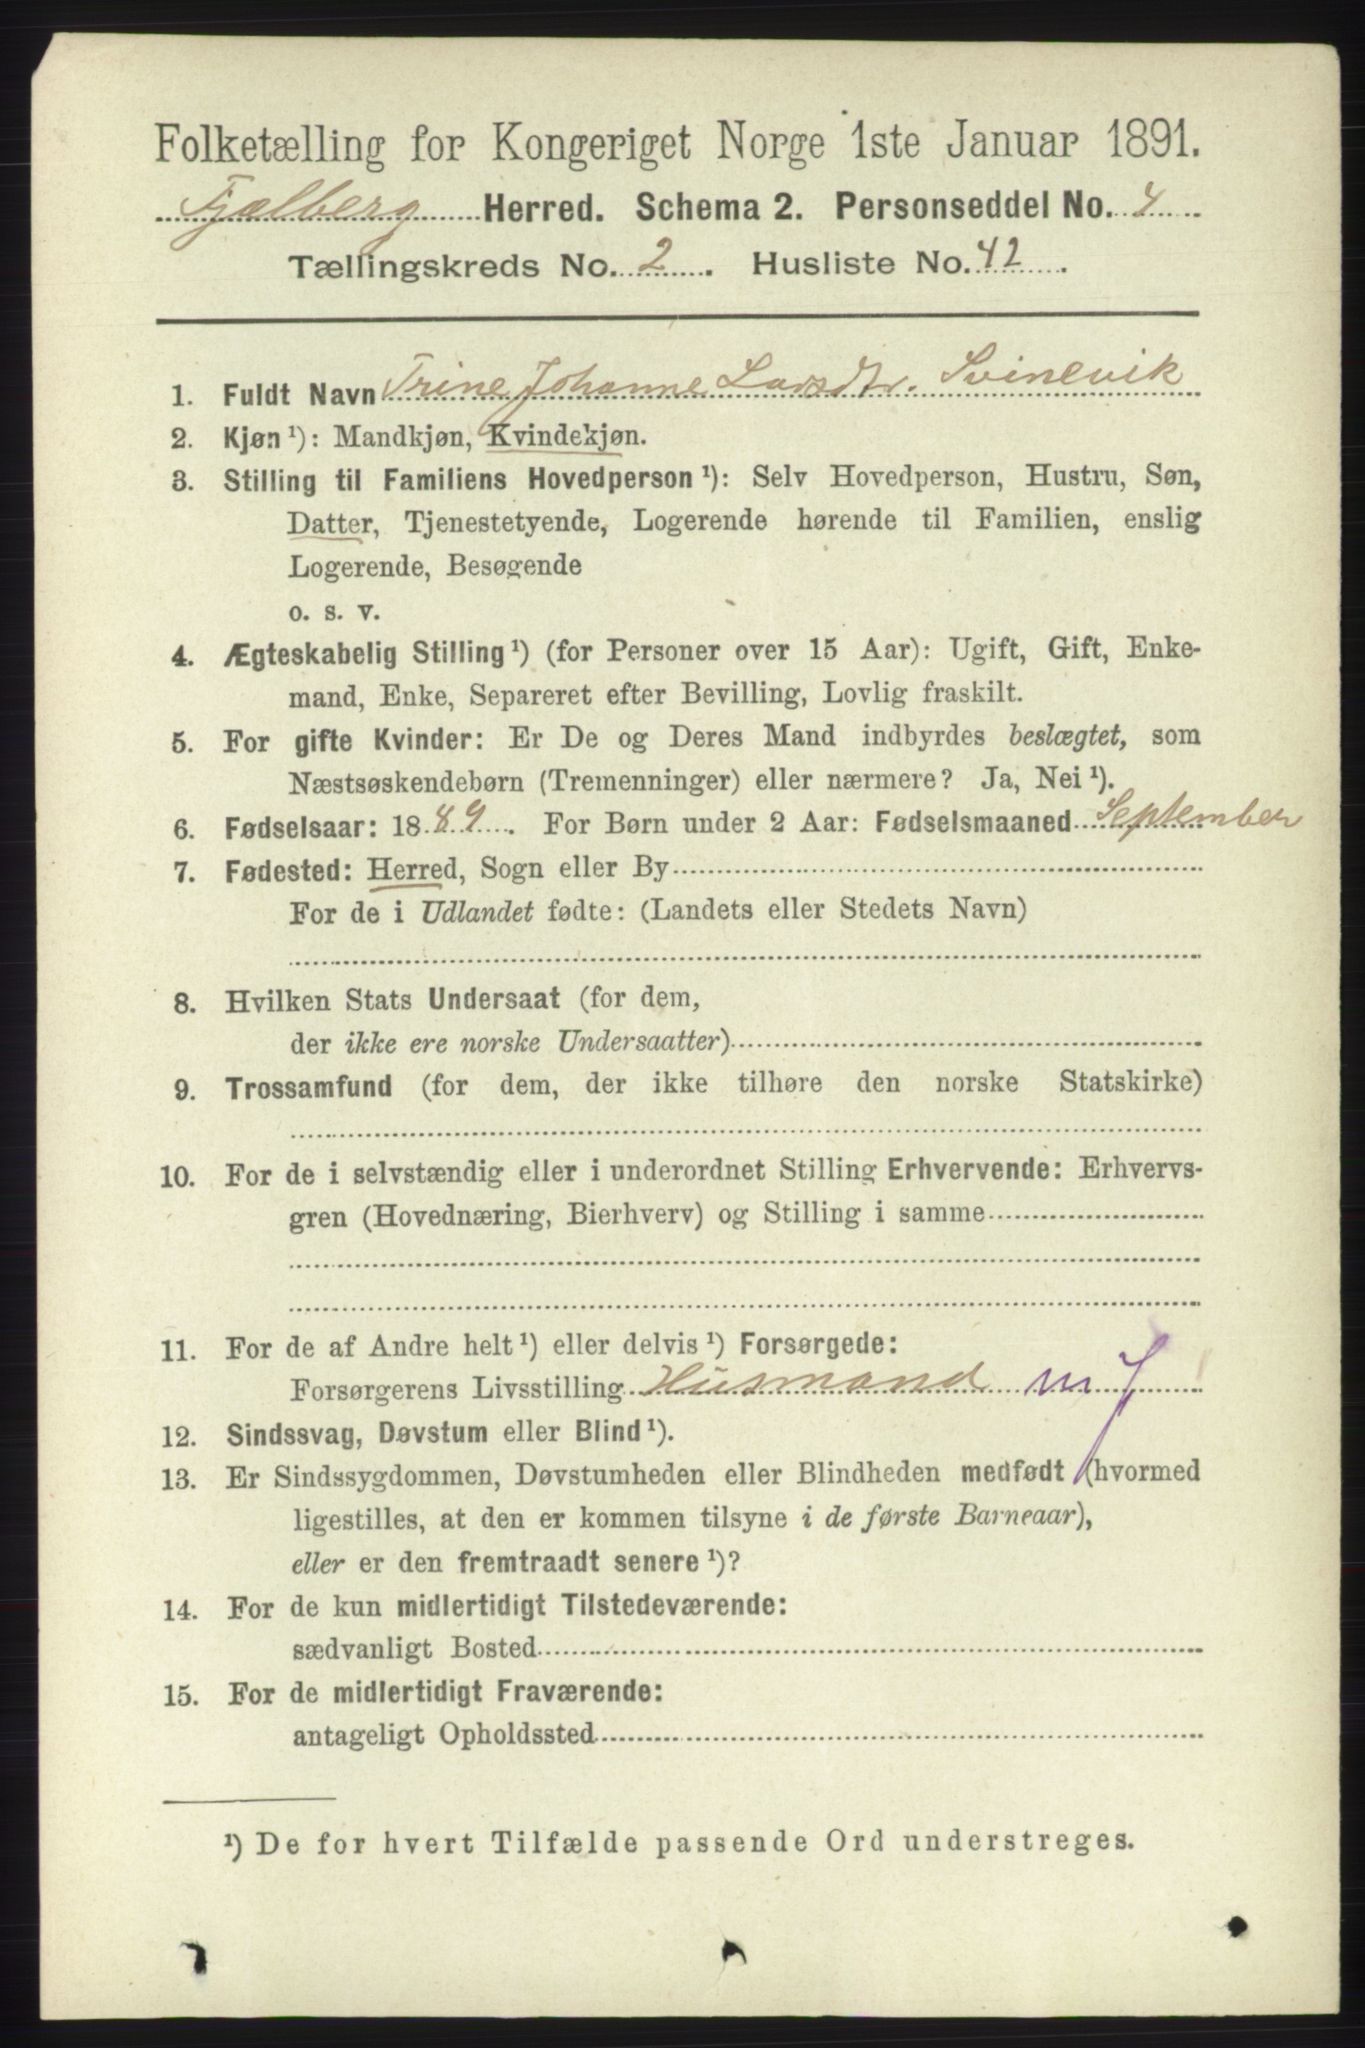 Folketælling for Kongeriget Norge 1ste Januar 1891.
Fjælberg Herred. Schema 2. Personseddel No. 4
Tællingskreds No. 2. Husliste No. 42.
1. Fuldt Navn Trine Johanne Larsdtr. Svinevik
2. Kjøn¹): Mandkjøn, Kvindekjøn.
3. Stilling til Familiens Hovedperson¹): Selv Hovedperson, Hustru, Søn,
Datter, Tjenestetyende, Logerende hørende til Familien, enslig
Logerende, Besøgende
o. s. v.
4. Ægteskabelig Stilling¹) (for Personer over 15 Aar): Ugift, Gift, Enke-
mand, Enke, Separeret efter Bevilling, Lovlig fraskilt.
5. For gifte Kvinder: Er De og Deres Mand indbyrdes beslægtet, som
Næstsøskendebørn (Tremenninger) eller nærmere? Ja, Nei¹).
6. Fødselsaar: 1889. For Børn under 2 Aar: Fødselsmaaned September
7. Fødested: Herred, Sogn eller By
For de i Udlandet fødte: (Landets eller Stedets Navn)
8. Hvilken Stats Undersaat (for dem,
der ikke ere norske Undersaatter)
9. Trossamfund (for dem, der ikke tilhøre den norske Statskirke)
10. For de i selvstændig eller i underordnet Stilling Erhvervende: Erhvervs-
gren (Hovednæring, Bierhverv) og Stilling i samme
11. For de af Andre helt¹) eller delvis¹) Forsørgede:
Forsørgerens Livsstilling Husmand m J
12. Sindssvag, Døvstum eller Blind¹).
13. Er Sindssygdommen, Døvstumheden eller Blindheden medfødt (hvormed
ligestilles, at den er kommen tilsyne i de første Barneaar),
eller er den fremtraadt senere¹)?
14. For de kun midlertidigt Tilstedeværende:
sædvanligt Bosted
15. For de midlertidigt Fraværende:
antageligt Opholdssted
¹) De for hvert Tilfælde passende Ord understreges.